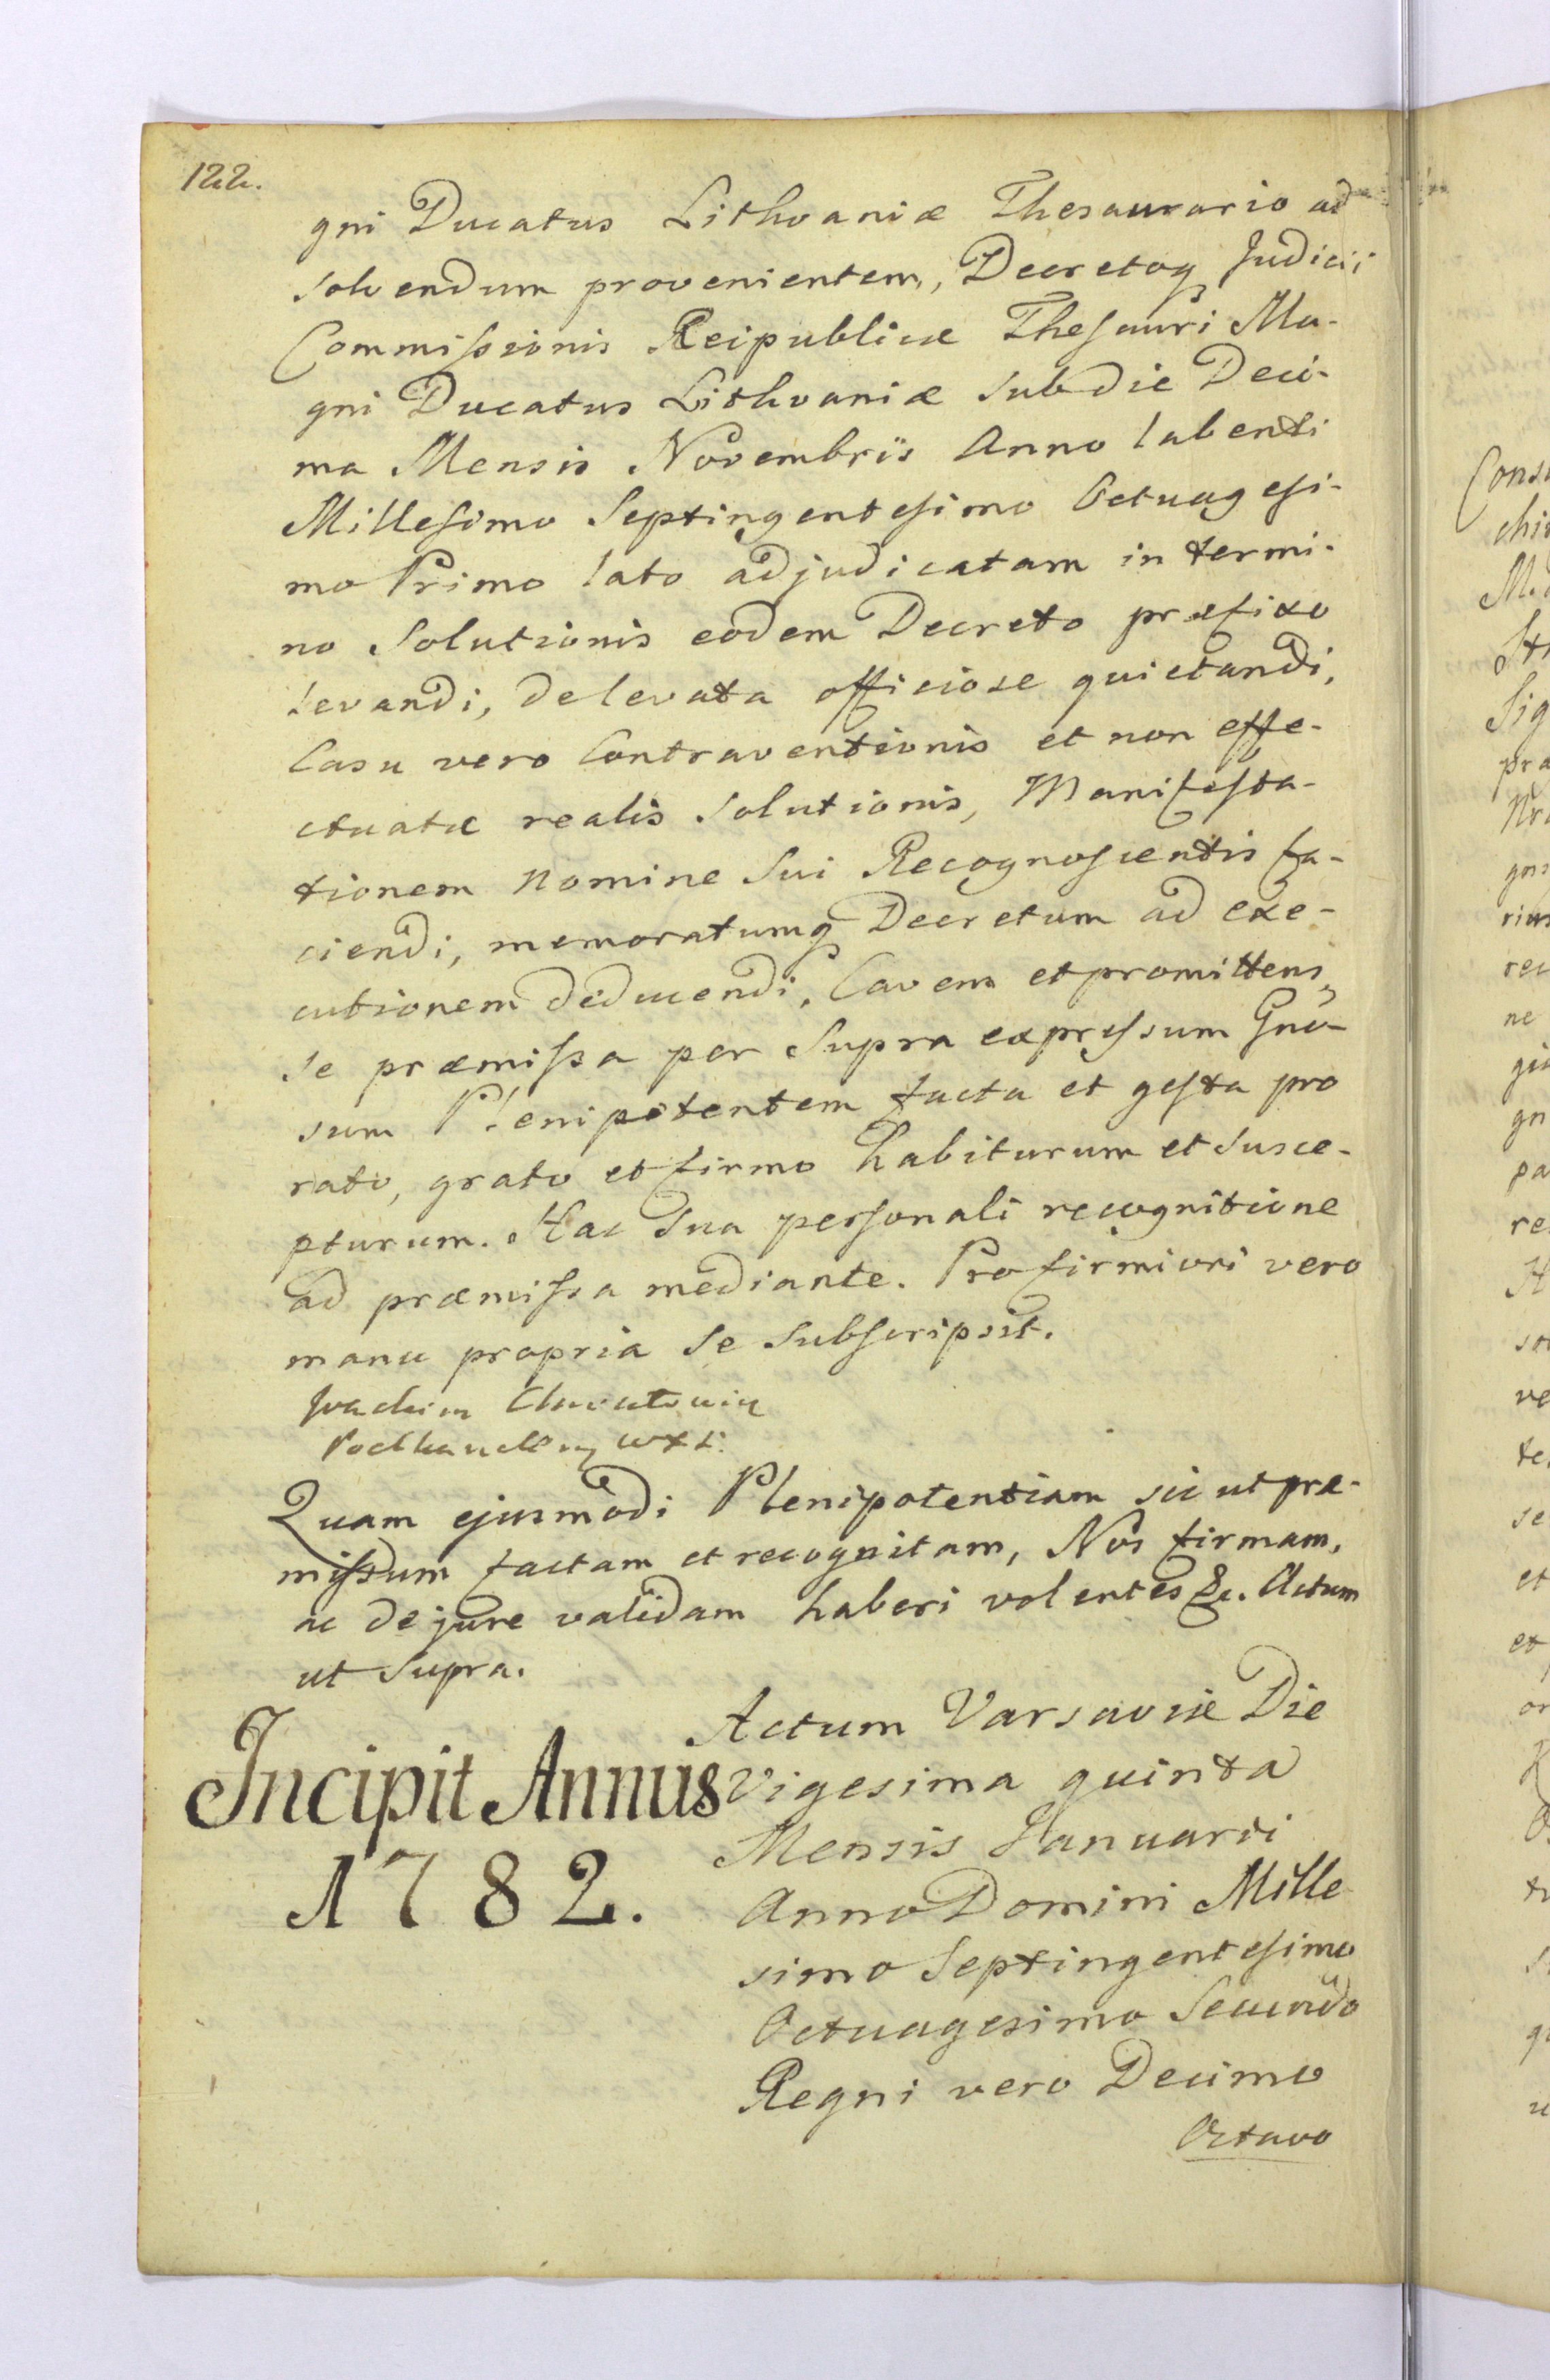 122.
gni Ducatus Lithvaniæ Thesaurario ad
solvendum provenientem, Decretoq Judicii
Commissionis Reipublicæ Thesauri Ma-
gni Ducatus Lithvaniæ sub die Deci-
ma Mensis Novembris Anno labenti
Millesimo Septingentesimo Octuagesi-
mo Primo lato adjudicatam in termi-
no Solutionis eodem Decreto præfixo
levandi, de levata officiose quietandi,
Casu vero Contraventionis et non effe-
ctuatæ realis Solutionis, Manifesta-
tionem Nomine Sui Recognoscentis fa-
ciendi, memoratumq Decretum ad exe-
cutionem deducendi, Cavens et promittens,
se præmissa per Supra expressum Gno-
sum Plenipotentem facta et gesta pro
rato, grato et firmo habiturum et susce-
pturum. Hac Sua personali recognitione
ad præmissa mediante. Pro firmiori vero
manu propria se subscripsit.
Joachim
Quam ejusmodi Plenipotentiam sic ut præ-
missum factam et recognitam, Nos firmam,
ac de jure validam haberi volentes &c. Actum
ut Supra.
Incipit Annus
1782.
Actum Varsaviæ Die
Vigesima quinta
Mensis Januarii
Anno Domini Mille
simo Septingentesimo
Octuagesimo Secundo
Regni vero Decimo
Octavo